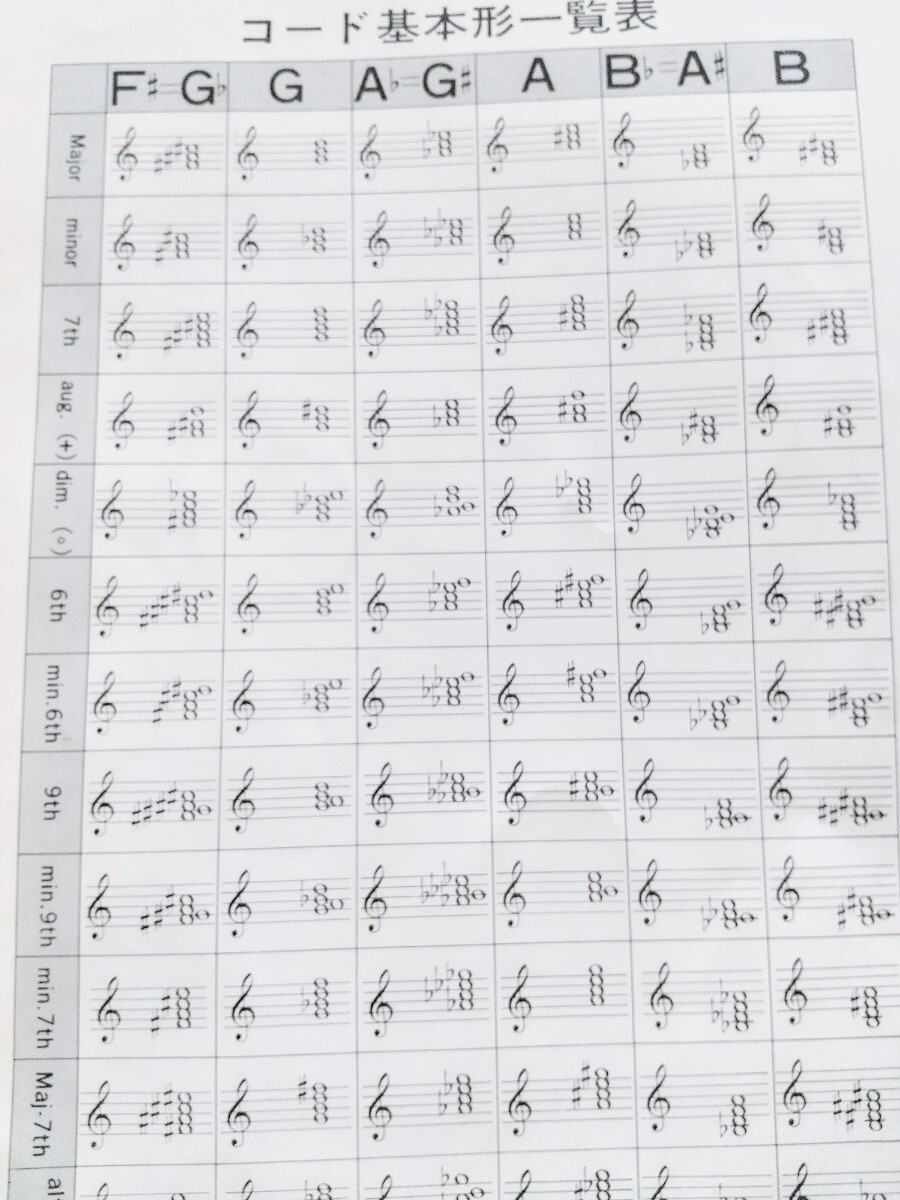 コード基本形一覧表
F♯=G♭ G A♭=G♯ A B♭=A♯ B
Major
minor
7th
aug. (+)
dim. (○)
6th
min.6th
9th
min.9th
min.7th
Maj.7th